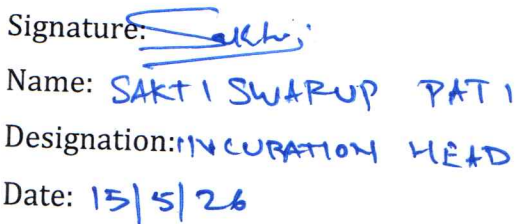 Signature: Sakti
Name: SAKTI SWARUP PATI
Designation: INCUBATION HEAD
Date: 15/5/26